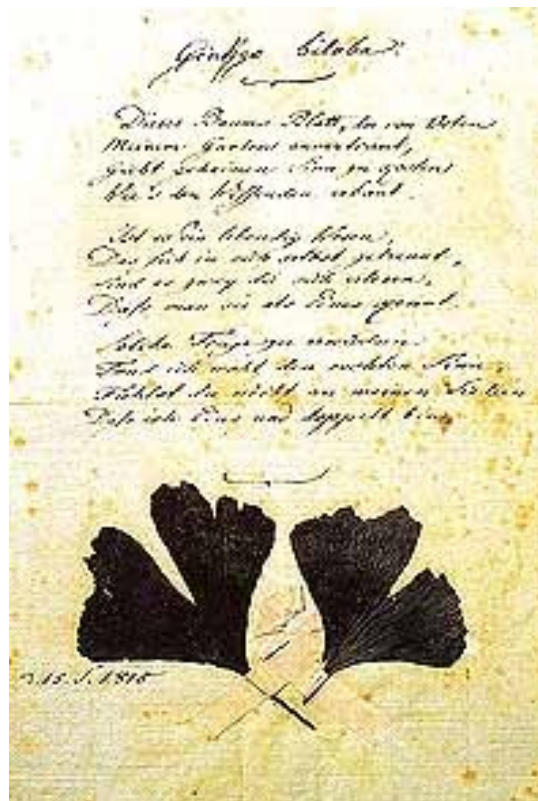 Ginkgo biloba.
Dieses Baums Blatt, der von Osten
Meinem Garten anvertraut,
Giebt geheimen Sinn zu kosten
Wie's den Wissenden erbaut.
Ist es Ein lebendig Wesen,
Das sich in sich selbst getrennt,
Sind es zwey die sich erlesen,
Dass man sie als Eines kennt.
Solche Frage zu erwiedern
Fand ich wohl den rechten Sinn;
Fühlst du nicht an meinen Liedern
Dass ich Eins und doppelt bin.